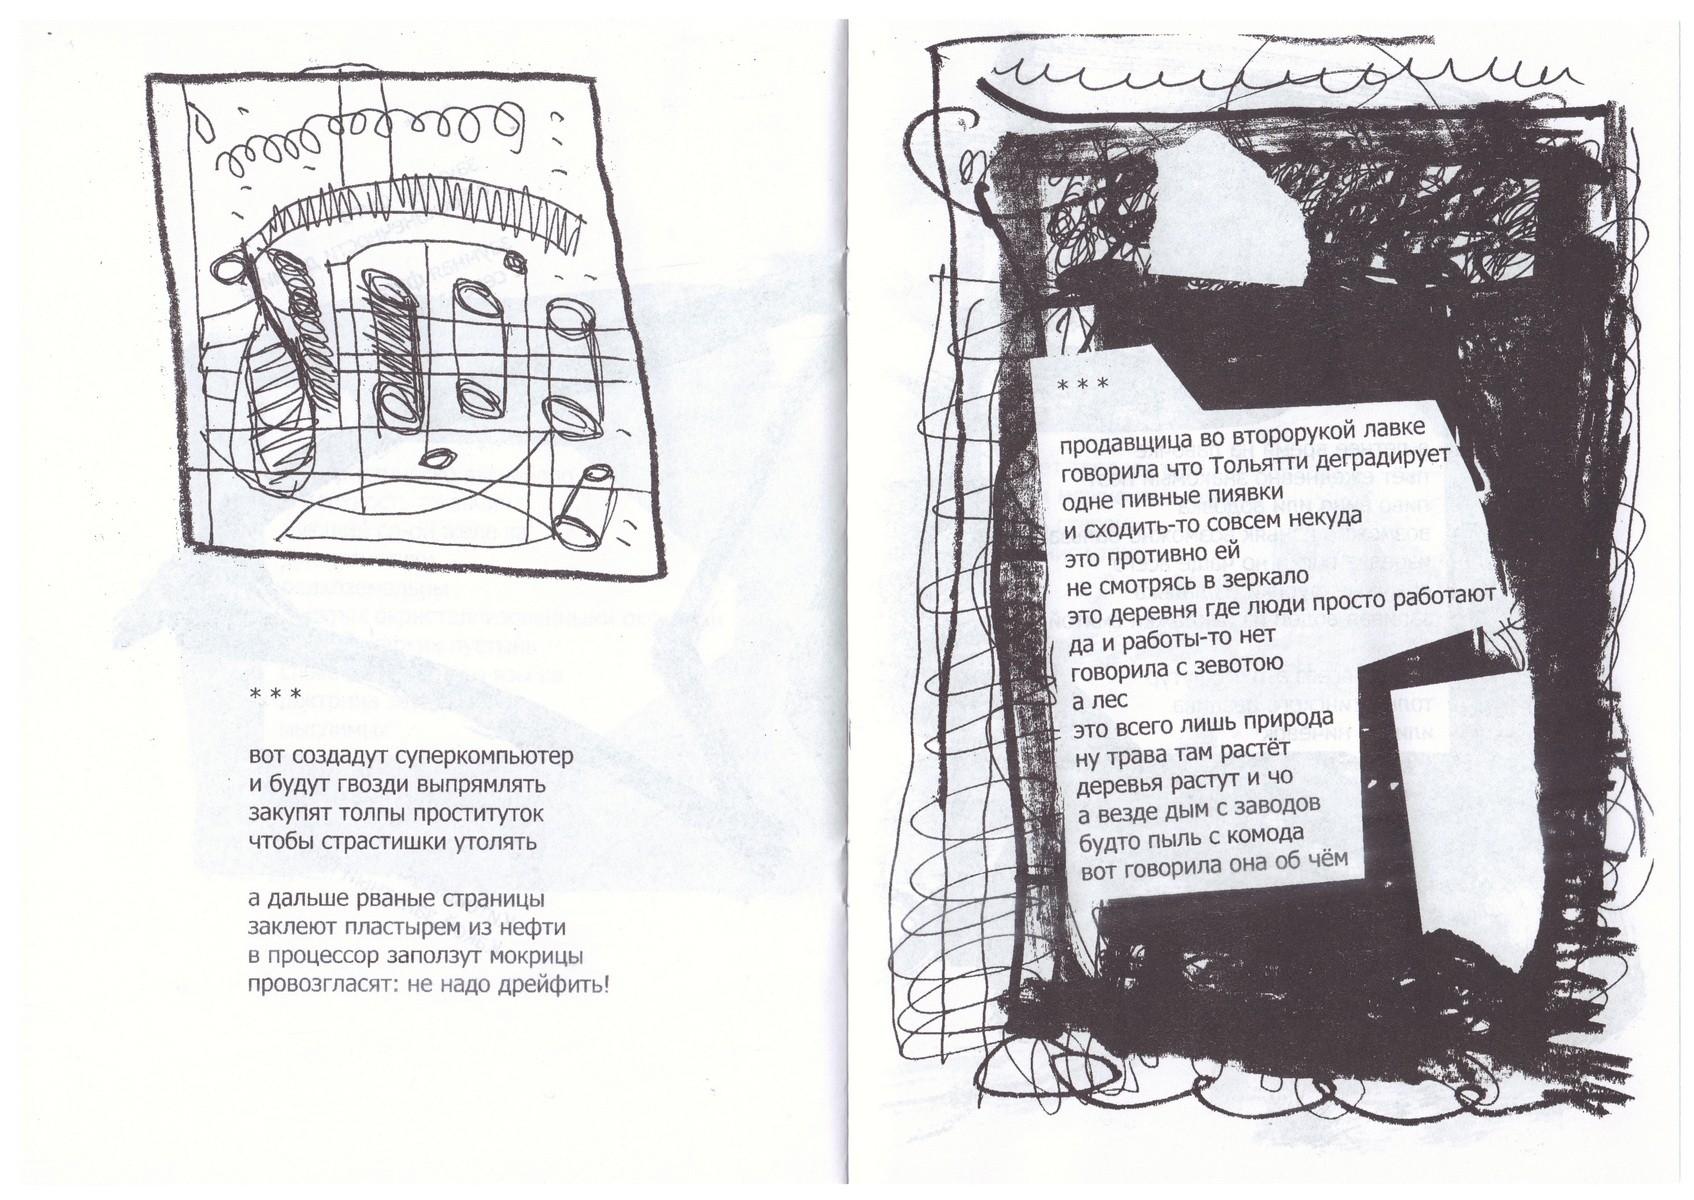 * * *
вот создадут суперкомпьютер
и будут гвозди выпрямлять
закупят толпы проституток
чтобы страстишки утолять
а дальше рваные страницы
заклеют пластырем из нефти
в процессор заползут мокрицы
провозгласят: не надо дрейфить!
* * *
продавщица во второрукой лавке
говорила что Тольятти деградирует
одне пивные пиявки
и сходить-то совсем некуда
это противно ей
не смотрясь в зеркало
это деревня где люди просто работают
да и работы-то нет
говорила с зевотою
а лес
это всего лишь природа
ну трава там растёт
деревья растут и чо
а везде дым с заводов
будто пыль с комода
вот говорила она об чём